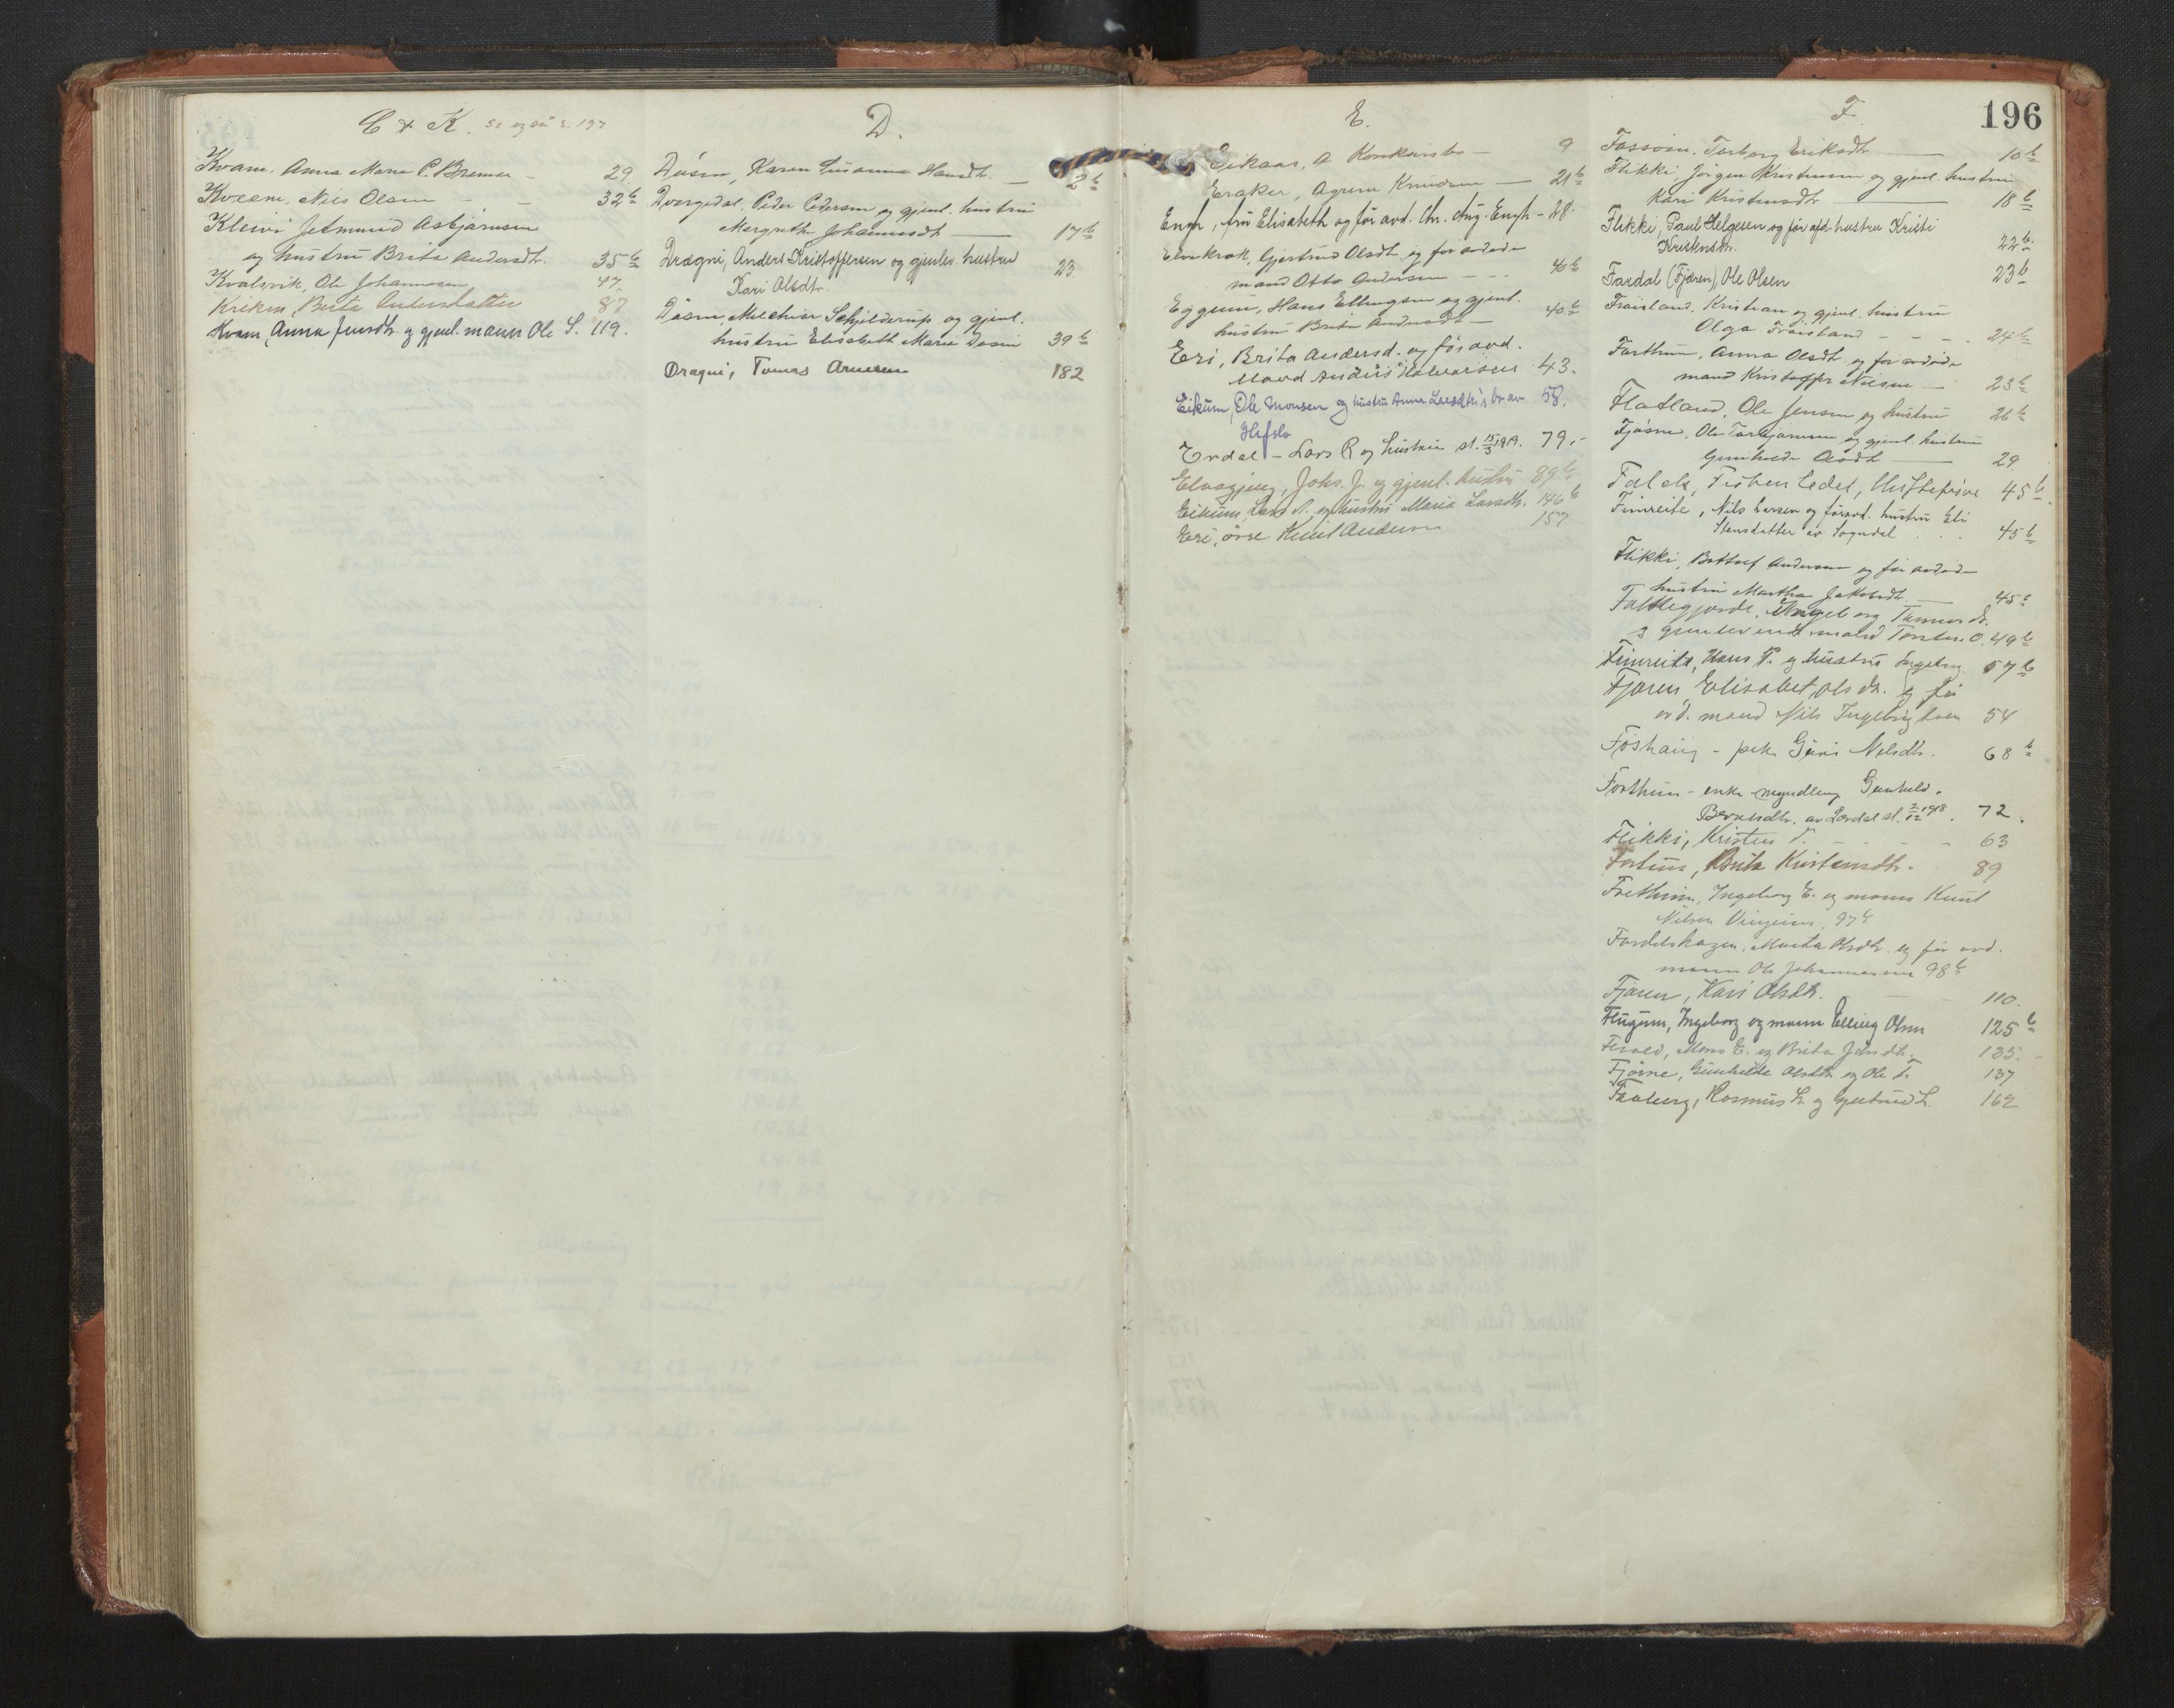 C & K. Se også s. 197
Kvam, Anna Marie C. Bremer - 29.
Kvam, Nils Olsen - - 32b
Kleivi Jetmund Asbjørnsen
og hustru Brita Andersdtr. 35b
Kvalsvik, Ole Johannesen 47.
Kriken, Brita Andersdatter 87
Kvam, Anna Jensdtr. og gjenl. mann Ole S. 119.
D.
Døsen, Karen Susanna Handtr. — 2b
Dvergedal, Peder Pedersen og gjenl. hustru
Margrethe Johannesdtr — 17b
Drægni, Anders Kristoffersen og gjenlev. hustru 23
Kari Olsdtr.
Døsen, Melchior Schjelderup og gjenl.
hustru Elisabeth Marie Døsen 39b
Drægni, Tomas Arnesen 182
E.
Eikaas, A Konkursbo — 9
Eraker, Agrim Knudsen — 21b
Engh, fru Elisabeth og før avd. Chr. Aug. Engh - 28.
Elvekrok, Gjertrud Olsdtr. og før avdøde
mand Otto Andersen - - - 40b
Eggum, Hans Ellingsen og gjenl.
hustru Brita Andersdtr — 40b
Eri, Brita Andersd. og før avd.
Mand Anders Halvorsen 43.
Eikum, Ole Monsen og hustru Anna Larsdtr's bo av 58.
Hafslo
Erdal - Lars R og hustru st. 15/3 1919. 79.-
Elvagjeng, Johs. J. og gjenl. hustru 89b
Eikum, Lars N. og hustru Marie Larsdtr. 146b
Eri, øvre Knut Andersen 157
F. 196
Fossøin, Torborg Eriksdtr — 10b
Flikki, Jørgen Kristensen og gjenl. hustru
Kari Kristensdtr — 18b
Flikki, Paul Helgesen og før afd. hustru Kristi
Kristensdtr. 22b
Fardal (Fjæren), Ole Olsen 23b
Fraisland, Kristian og gjenl. hustru
Olga Fraisland - - - 24b
Forthun, Anna Olsdtr og før avdøde
mand Kristoffer Nilsen — 25b
Flatland, Ole Jensen og hustru 26b
Fjøsne, Ole Torbjørnsen og gjenl. hustru
Gunhilde Olsdtr — 29
Falck, Fröken Edel, 45b
Fimreite, Nils Larsen og før avd. hustru Eli
Stensdatter av Sogndal . . 45b
Flikki, Bottolf Andersen og før avdøde
hustru Martha Jakobsdtr. — 45b
Faltegjorde, Ingeborg
gjenlevende mand Torsten O. 49b
Fimreite, Hans P. og hustru Ingeborg 57b
Fjæren, Elisabet Olsdr. og før
avd. mand Nils Ingebrigtsen 54
Föshaug - pike Guri Nelsdtr. 68b
Forthun - enke myndling Gunhild.
av Lærdal st. 2/12 1918. 72.
Flikki, Kristen P. - - - 63
Fortun, Brita Kristensdtr. 89
Frethim, Ingeborg E. og mann Knut
Nilsen Vinjum, 97b
Fardelshagen, Marta Olsdtr. og før avd.
mann Ole Johannesen 98b
Fjæren, Kari Olsdtr. - - 110.
Flugum, Ingeborg og mann Elling Olsen 125b
Mons E. og Brita Jensdtr. 135.
Fjösne, Gunhilde Olsdtr og Ole T. 137
Faaberg, Rasmus L og Gjertrud L. 162